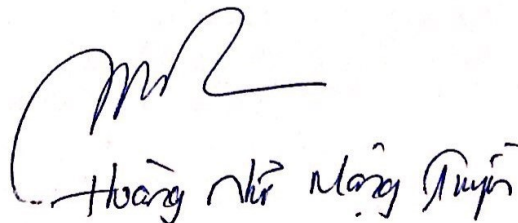 Hoàng Như Mộng Tuyền